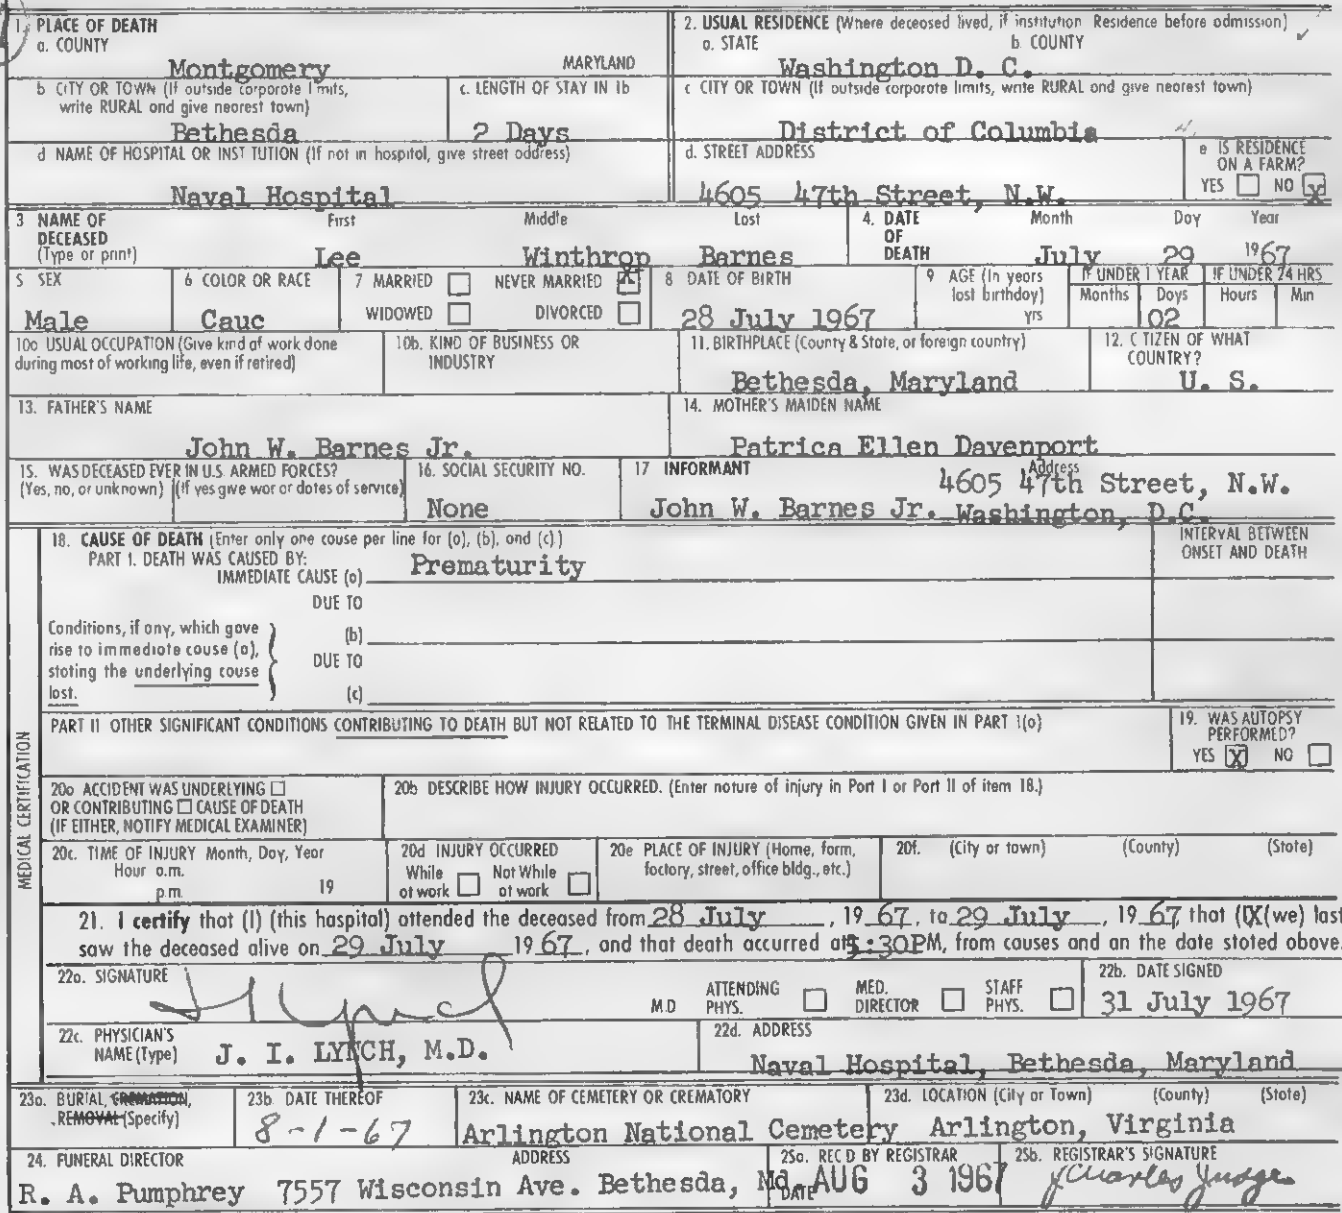 1. PLACE OF DEATH
a. COUNTY
Montgomery MARYLAND
2. USUAL RESIDENCE (Where deceased lived, if institution Residence before admission)
a. STATE b COUNTY
Washington D. C.
b CITY OR TOWN (If outside corporate limits, write RURAL and give nearest town)
Bethesda
c. LENGTH OF STAY IN 1b
2 Days
c CITY OR TOWN (If outside corporate limits, write RURAL and give nearest town)
District of Columbia
d NAME OF HOSPITAL OR INSTITUTION (If not in hospital, give street address)
Naval Hospital
d. STREET ADDRESS
4605 47th Street, N.W.
e IS RESIDENCE ON A FARM?
YES NO X
3 NAME OF DECEASED (Type or print)
First Middle Last
Lee Winthrop Barnes
4. DATE OF DEATH
Month Day Year
July 29 1967
5 SEX
Male
6 COLOR OR RACE
Cauc
7 MARRIED NEVER MARRIED X
WIDOWED DIVORCED
8 DATE OF BIRTH
28 July 1967
9 AGE (In years last birthday)
yrs
IF UNDER 1 YEAR
Months Days
02
IF UNDER 24 HRS
Hours Min
10a USUAL OCCUPATION (Give kind of work done during most of working life, even if retired)
10b. KIND OF BUSINESS OR INDUSTRY
11. BIRTHPLACE (County & State, or foreign country)
Bethesda, Maryland
12. CITIZEN OF WHAT COUNTRY?
U. S.
13. FATHER'S NAME
John W. Barnes Jr.
14. MOTHER'S MAIDEN NAME
Patrica Ellen Davenport
15. WAS DECEASED EVER IN U.S. ARMED FORCES?
(Yes, no, or unknown) (If yes give war or dates of service)
16. SOCIAL SECURITY NO.
None
17 INFORMANT Address
4605 47th Street, N.W.
John W. Barnes Jr. Washington, D.C.
MEDICAL CERTIFICATION
18. CAUSE OF DEATH (Enter only one cause per line for (a), (b), and (c).)
PART 1. DEATH WAS CAUSED BY:
IMMEDIATE CAUSE (a) Prematurity
INTERVAL BETWEEN ONSET AND DEATH
DUE TO
Conditions, if any, which gave rise to immediate cause (a), stating the underlying cause last.
(b)
DUE TO
(c)
PART II OTHER SIGNIFICANT CONDITIONS CONTRIBUTING TO DEATH BUT NOT RELATED TO THE TERMINAL DISEASE CONDITION GIVEN IN PART 1(a)
19. WAS AUTOPSY PERFORMED?
YES X NO
20a ACCIDENT WAS UNDERLYING
OR CONTRIBUTING CAUSE OF DEATH
(IF EITHER, NOTIFY MEDICAL EXAMINER)
20b DESCRIBE HOW INJURY OCCURRED. (Enter nature of injury in Part I or Part II of item 18.)
20c. TIME OF INJURY Month, Day, Year
Hour a.m.
p.m. 19
20d INJURY OCCURRED
While at work Not While at work
20e PLACE OF INJURY (Home, farm, factory, street, office bldg., etc.)
20f. (City or town) (County) (State)
21. I certify that (I) (this hospital) attended the deceased from 28 July, 19 67, to 29 July, 19 67 that (IX(we) last
saw the deceased alive on 29 July 19 67, and that death occurred at :30PM, from causes and on the date stated above.
22a. SIGNATURE
J I Lynch M.D
ATTENDING PHYS. MED. DIRECTOR STAFF PHYS.
22b. DATE SIGNED
31 July 1967
22c. PHYSICIAN'S NAME (Type)
J. I. LYNCH, M.D.
22d. ADDRESS
Naval Hospital, Bethesda, Maryland
23a. BURIAL, CREMATION, REMOVAL (Specify)
23b DATE THEREOF
8-1-67
23c. NAME OF CEMETERY OR CREMATORY
Arlington National Cemetery
23d. LOCATION (City or Town) (County) (State)
Arlington, Virginia
24. FUNERAL DIRECTOR ADDRESS
R. A. Pumphrey 7557 Wisconsin Ave. Bethesda, Md.
25a. REC'D BY REGISTRAR
DATE AUG 3 1967
25b. REGISTRAR'S SIGNATURE
J Charles Judge